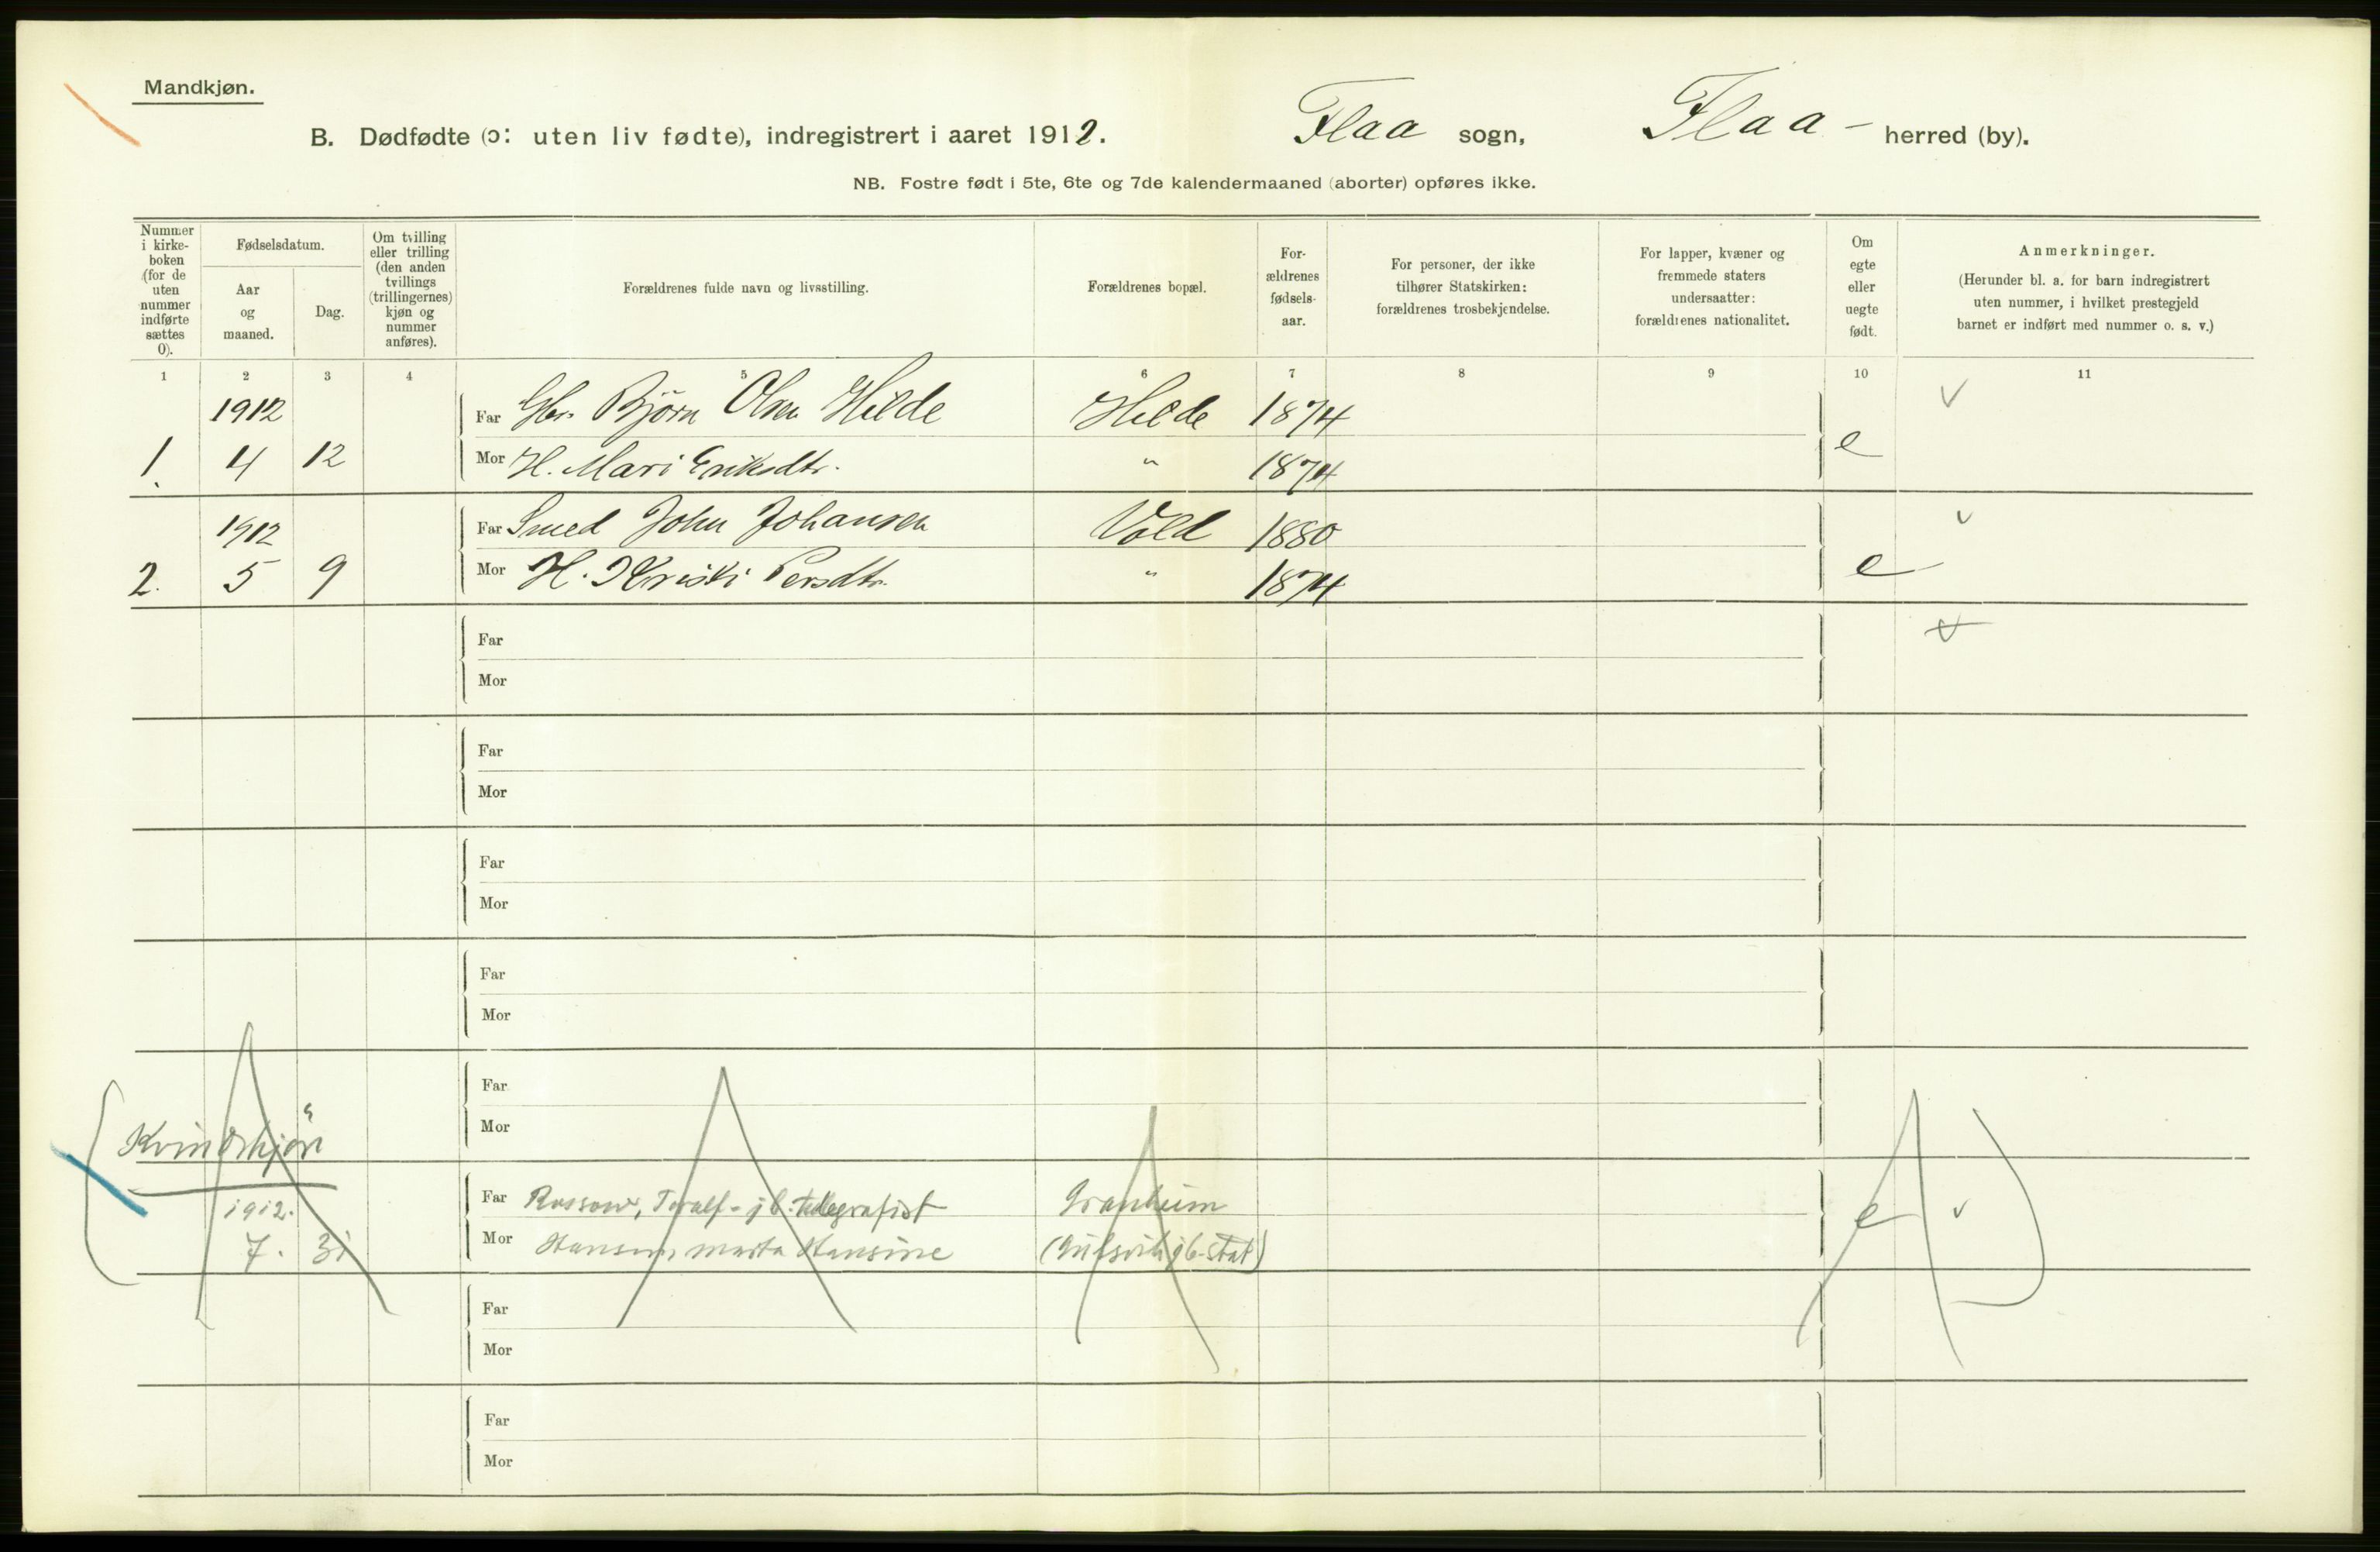 Mandkjøn.
B. Dødfødte (ɔ: uten liv fødte), indregistrert i aaret 1912. Flaa sogn, Flaa - herred (by).
NB. Fostre født i 5te, 6te og 7de kalendermaaned (aborter) opføres ikke.
Nummer
i kirke-
boken
(for de
uten
nummer
indførte
sættes
0).
Fødselsdatum.
Aar
og
maaned.
Dag.
Om tvilling
eller trilling
(den anden
tvillings
(trillingernes)
kjøn og
nummer
anføres).
Forældrenes fulde navn og livsstilling.
Forældrenes bopæl.
For-
ældrenes
fødsels-
aar.
For personer, der ikke
tilhører Statskirken:
forældrenes trosbekjendelse.
For lapper, kvæner og
fremmede staters
undersaatter:
forældrenes nationalitet.
Om
egte
eller
uegte
født.
Anmerkninger.
(Herunder bl. a. for barn indregistrert
uten nummer, i hvilket prestegjeld
barnet er indført med nummer o. s. v.)
1 2 3 4 5 6 7 8 9 10 11
1912 Far Gbr. Björn Olsen Hilde Hilde 1874 v
1. 4 12 Mor H. Mari Eriksdtr. " 1874 e
1912 Far Smed John Johansen Vold 1880 v
2. 5 9 Mor H. Kristi Persdtr. " 1874 e
Far v
Mor
Far
Mor
Far
Mor
Far
Mor
Far
Kvindekjön Mor
1912. Far Rossow, Toralf - jb. telegrafist Granheim e v
7. 31 Mor Hansen, Marta Hansine (Gulsvik jb-stat)
Far
Mor
Far
Mor